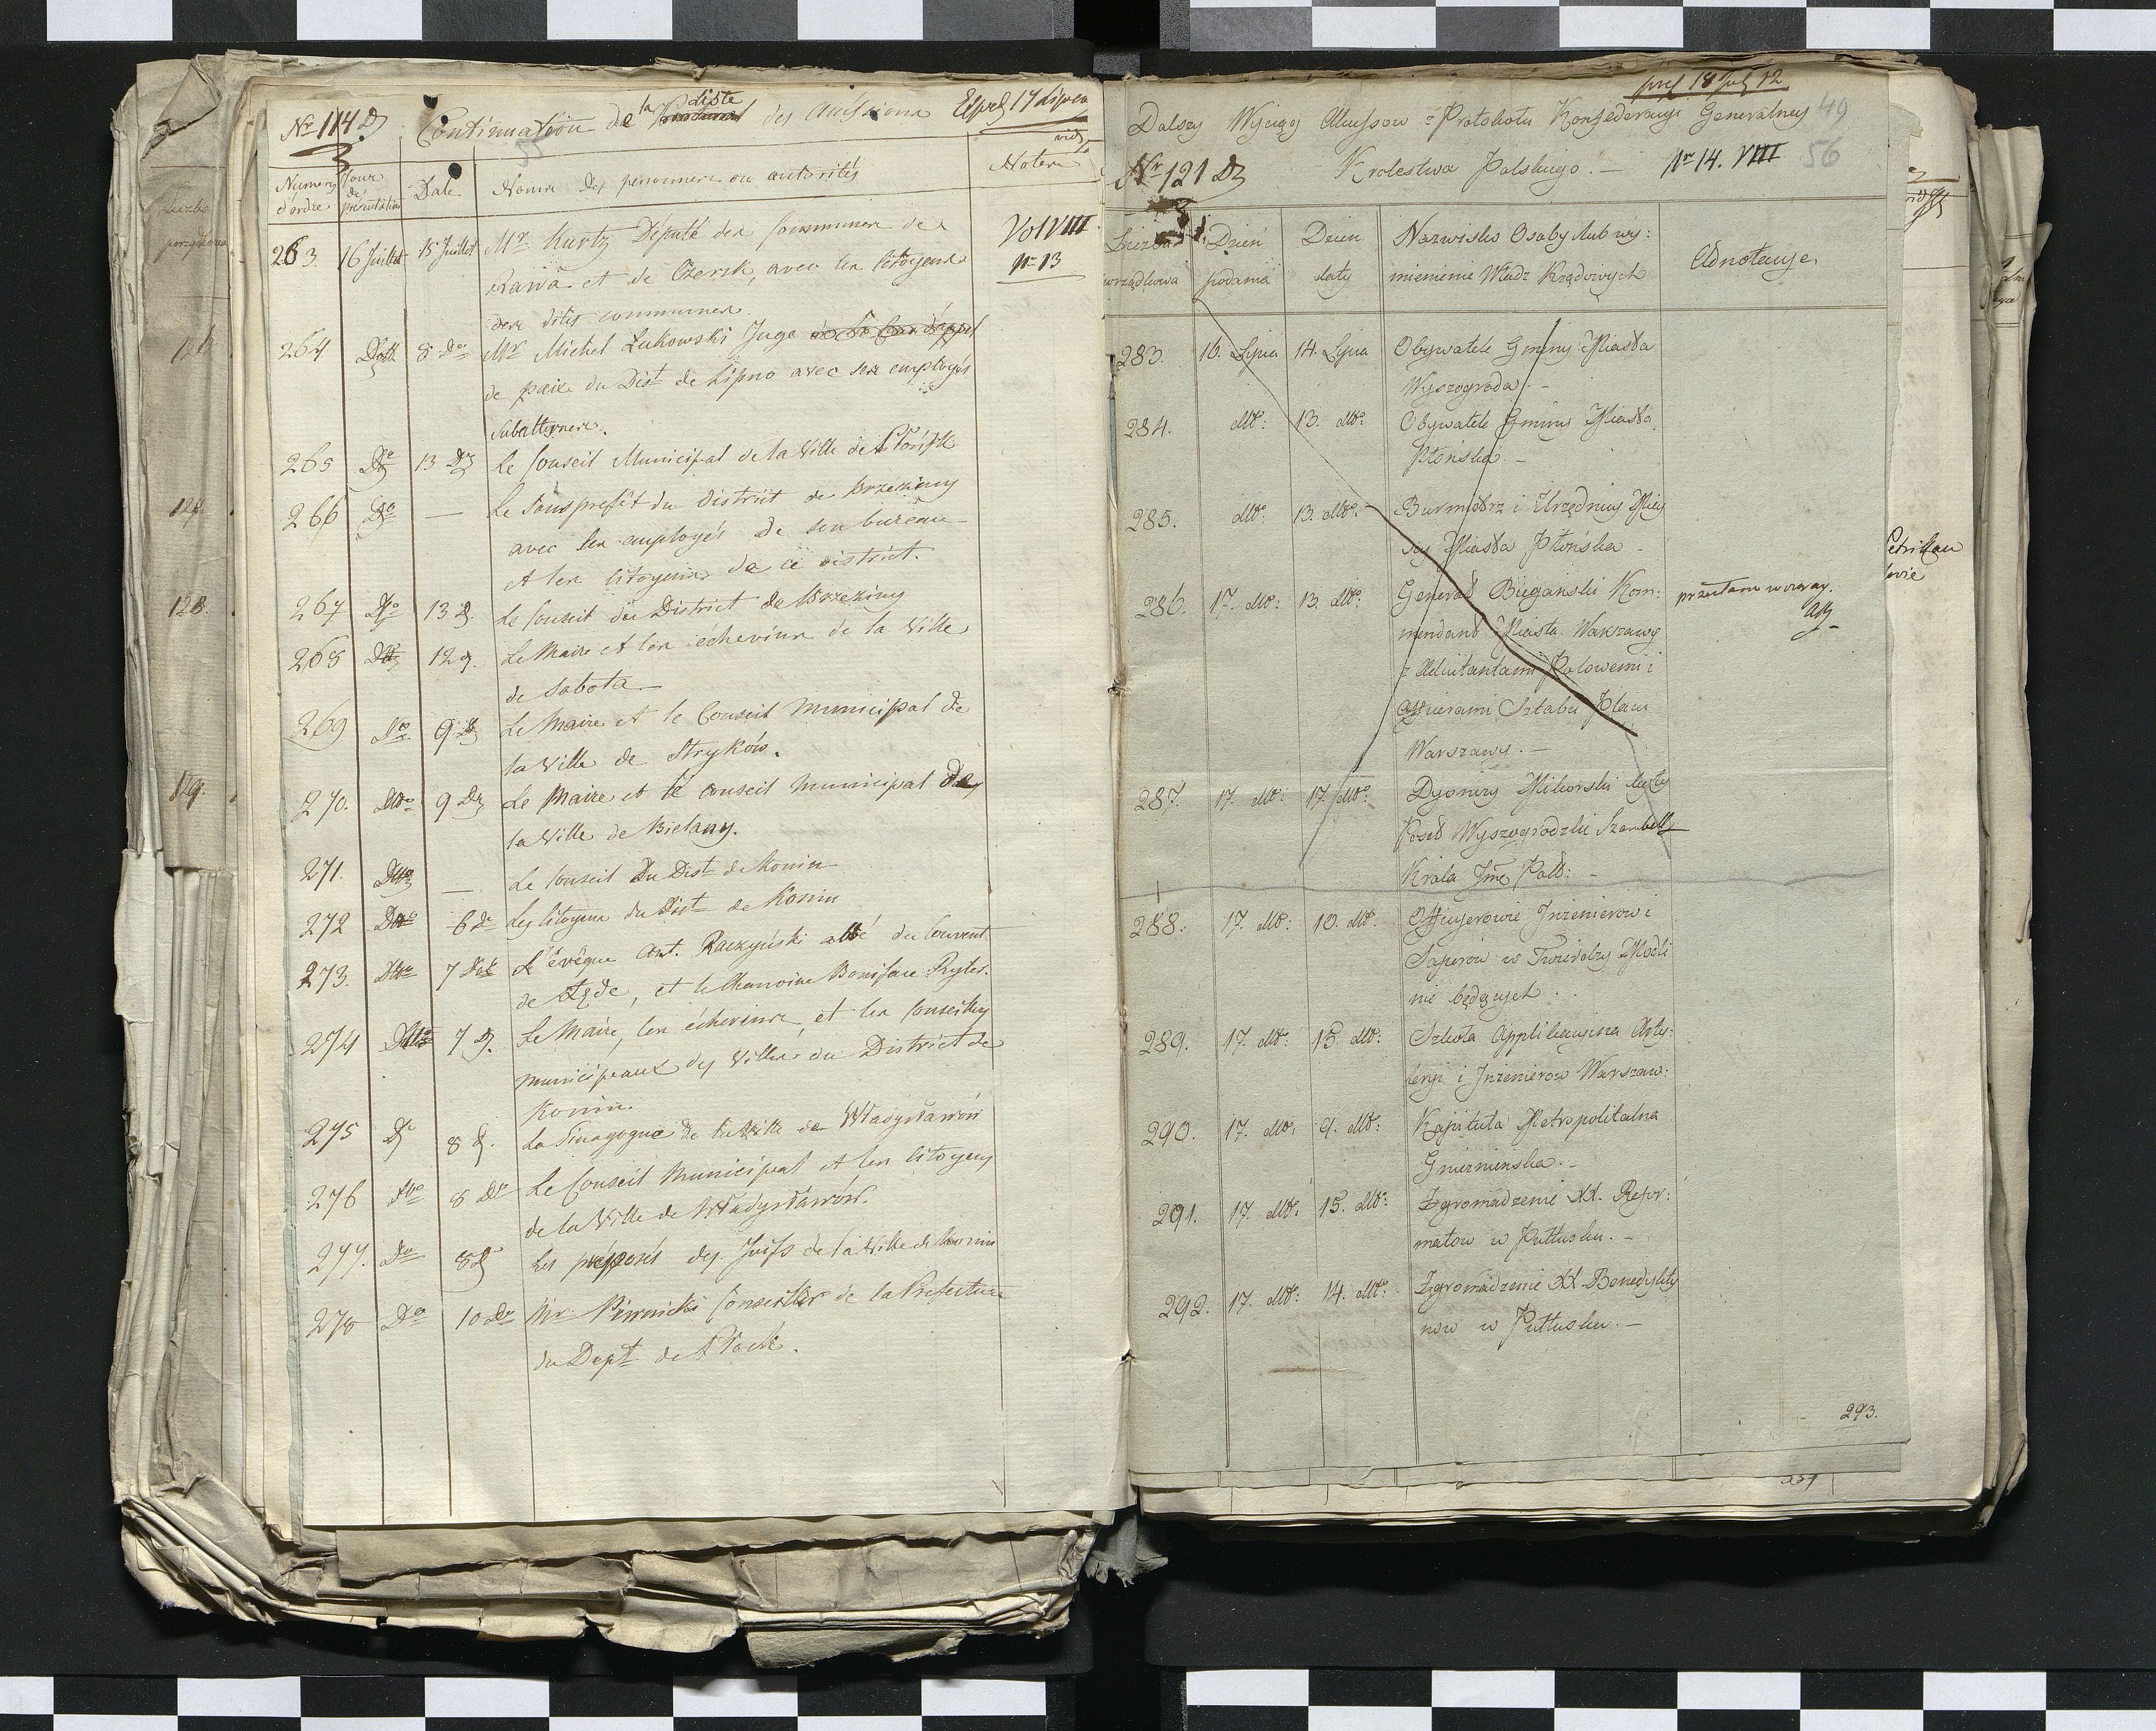 Nr 114 D
Continuation de la liste des Accessions
Exped 17 Lipca
Numero d'ordre
Jour de présentation
Date
Noms des personnes ou autorités
Notes
Vol VIII
Nr 13
263. 16 Juillet 15 Juillet Mr Kurtz Député des Communes de
Rawa et de Czersk, avec les Citoyens
des dites communes
264 Dtt 8 Do Mr Michel Lukowski Juge de la Cour d'appel
de paix du Dist de Lipno avec ses employés
Subalternes.
265 Do 13 D Le Conseil Municipal de la Ville de Płońsk
266 Do — Le Sousprefêt du District de Brzeziny
avec les employés de son bureau
et les Citoyens de ce district.
267 Do 13 D. Le Conseil du District de Brzeziny
268 Do 12 D. Le Maire et les échevins de la Ville
de Sobota
269 Do 9 D Le Maire et le Conseil Municipal de
la Ville de Stryków.
270. Dto 9 D Le Maire et le Conseil Municipal de
la Ville de Bielawy.
271. Dto — Le Conseil du Dist de Konin
272 Dto 6 Do Les Citoyens du Dist de Konin
273. Dto 7 Do L'évêque Ant. Raczyński abbé du Couvent
de Lęde, et le Chanoine Boniface Ryter.
274 Dto 7 D. Le Maire, les échevins et les Conseillers
municipaux des Villes du District de
Konin
275 D 8 D. La Sinagogue de la Ville de Władysławów
276 Dto 8 Do Le Conseil Municipal et les Citoyens
de la Ville de Władysławów.
277. Do 8 D Les préposés des Juifs de la Ville de Konin
278 Do 10 Do Mr Piwnicki Conseiller de la Prefecture
du Dept de Płock.
128.
129.
Dalszy Wyciąg Akcessow z Protokołu Konfederacyi Generalney
Nr 121 D
Krolestwa Polskiego. —
Nr 14. VIII
49
56
Liczba porządkowa
Dzień podania
Dzień daty
Nazwisko Osoby lub wy:
mienienie Władz Rządowych
Adnotacye
283. 16. Lipca 14. Lipca Obywatele Gminy Miasta
Wyszogroda. —
284. dtto: 13. dtto: Obywatele Gminy Miasta
Płońska —
285. dtto: 13. dtto: Burmistrz i Urzędnicy Miey
scy Miasta Płońska —
286. 17. dtto: 13. dtto: Generał Biegański Kom:
mendant Miasta Warszawy
z Adiutantami Polowemi i
Officierami Sztabu Placu
Warszawy. —
287. 17. dtto: 17. dtto: Dyonizy Mikorski
Poseł Wyszogrodzki Szambell
Krola Jmć Pols: —
288. 17. dtto: 10. dtto: Officyerowie Inzenierow i
Saperow w Twierdzy Modli
nie będących.
289. 17. dtto: 15. dtto: Szkoła Applikacyina Arty:
leryi i Inzenierow Warszaw:
290. 17. dtto: 9. dtto: Kapituła Metropolitalna
Gnieznienska. —
291. 17. dtto: 15. dtto: Zgromadzenie XX. Refor:
matow w Pułtusku. —
292. 17. dtto: 14. dtto: Zgromadzenie XX Benedykty
now w Pułtusku. —
293.